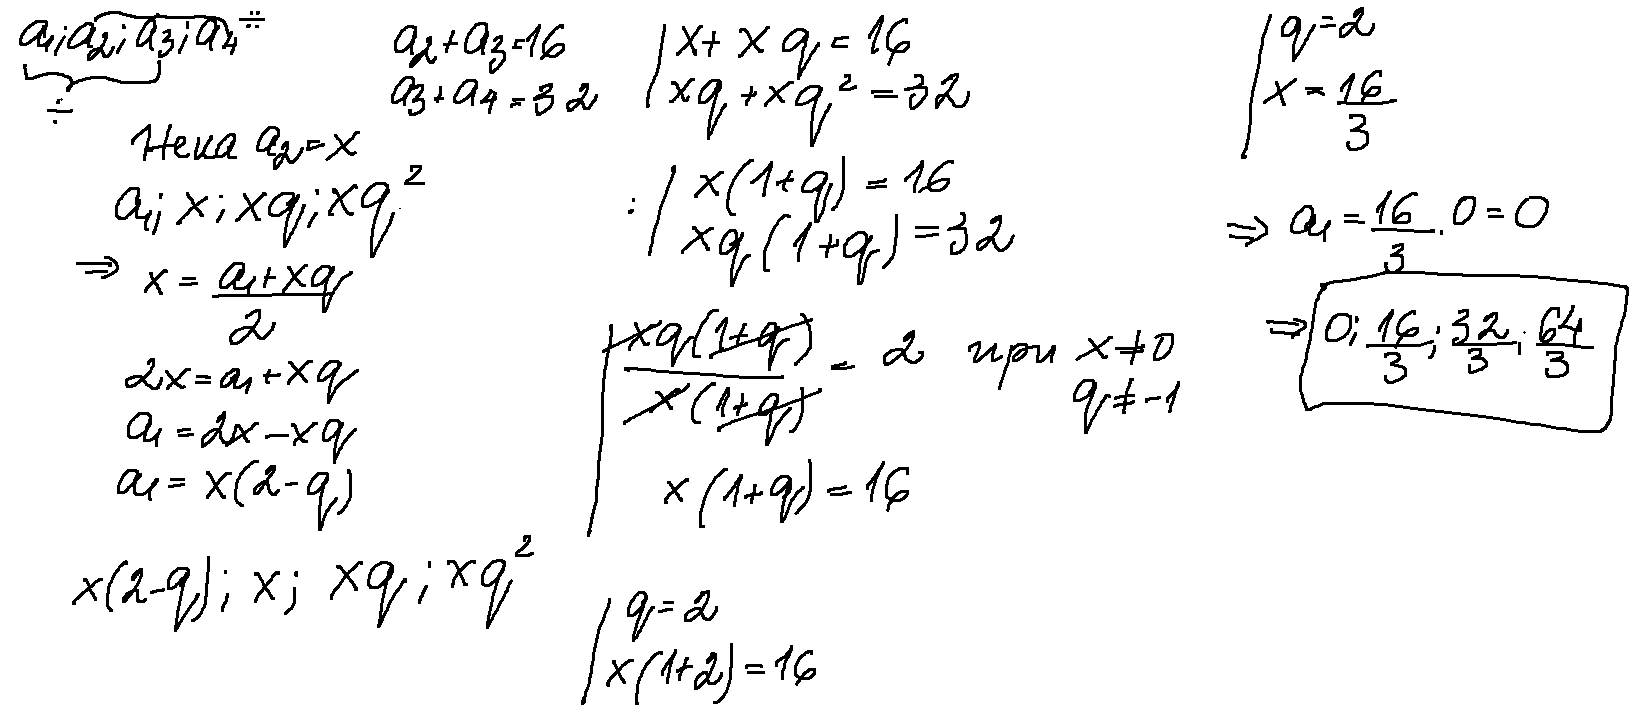 a₁; a₂; a₃; a₄ ∺
÷
a₂+a₃=16
a₃+a₄=32
Нека a₂=x
a₁; x; xq; xq²
⇒ x = (a₁+xq)/2
2x=a₁+xq
a₁=2x-xq
a₁=x(2-q)
x(2-q); x; xq; xq²
| x+xq=16
| xq+xq²=32
: | x(1+q)=16
| xq(1+q)=32
| xq(1+q)/x(1+q) = 2 при x≠0
q≠-1
x(1+q)=16
| q=2
| x(1+2)=16
| q=2
| x=16/3
⇒ a₁=16/3.0=0
⇒ 0; 16/3; 32/3; 64/3